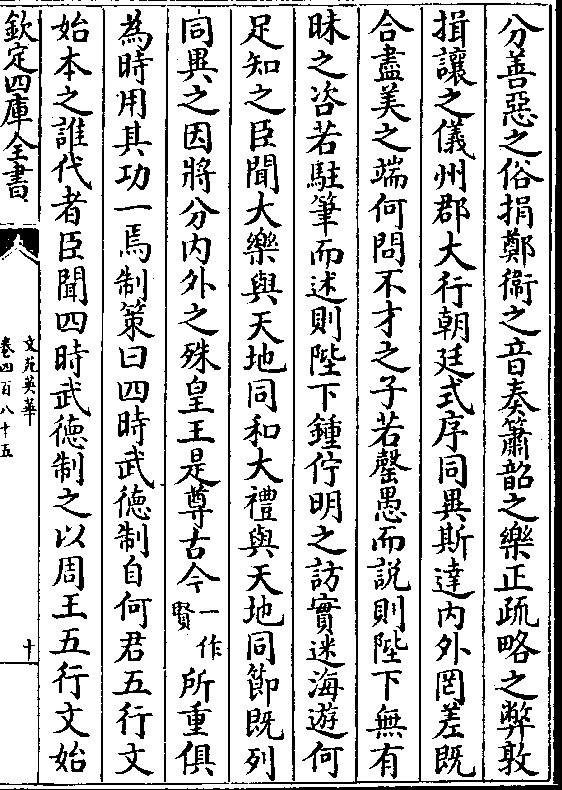 分善惡之俗捐鄭衞之音奏簫韶之樂正疏略之弊敦
揖讓之儀州郡大行朝廷式序同異斯達內外罔差既
合盡美之端何問不才之子若罄愚而説則陛下無有
昧之咨若駐筆而述則陛下鍾佇明之訪實迷海遊何
足知之臣聞大樂與天地同和大禮與天地同節既列
同異之因將分内外之殊皇王是尊古今一作賢所重俱
為時用其功一焉制策曰四時武德制自何君五行文
始本之誰代者臣聞四時武德制之以周王五行文始
欽定四庫全書
文苑英華
卷四百八十五
十